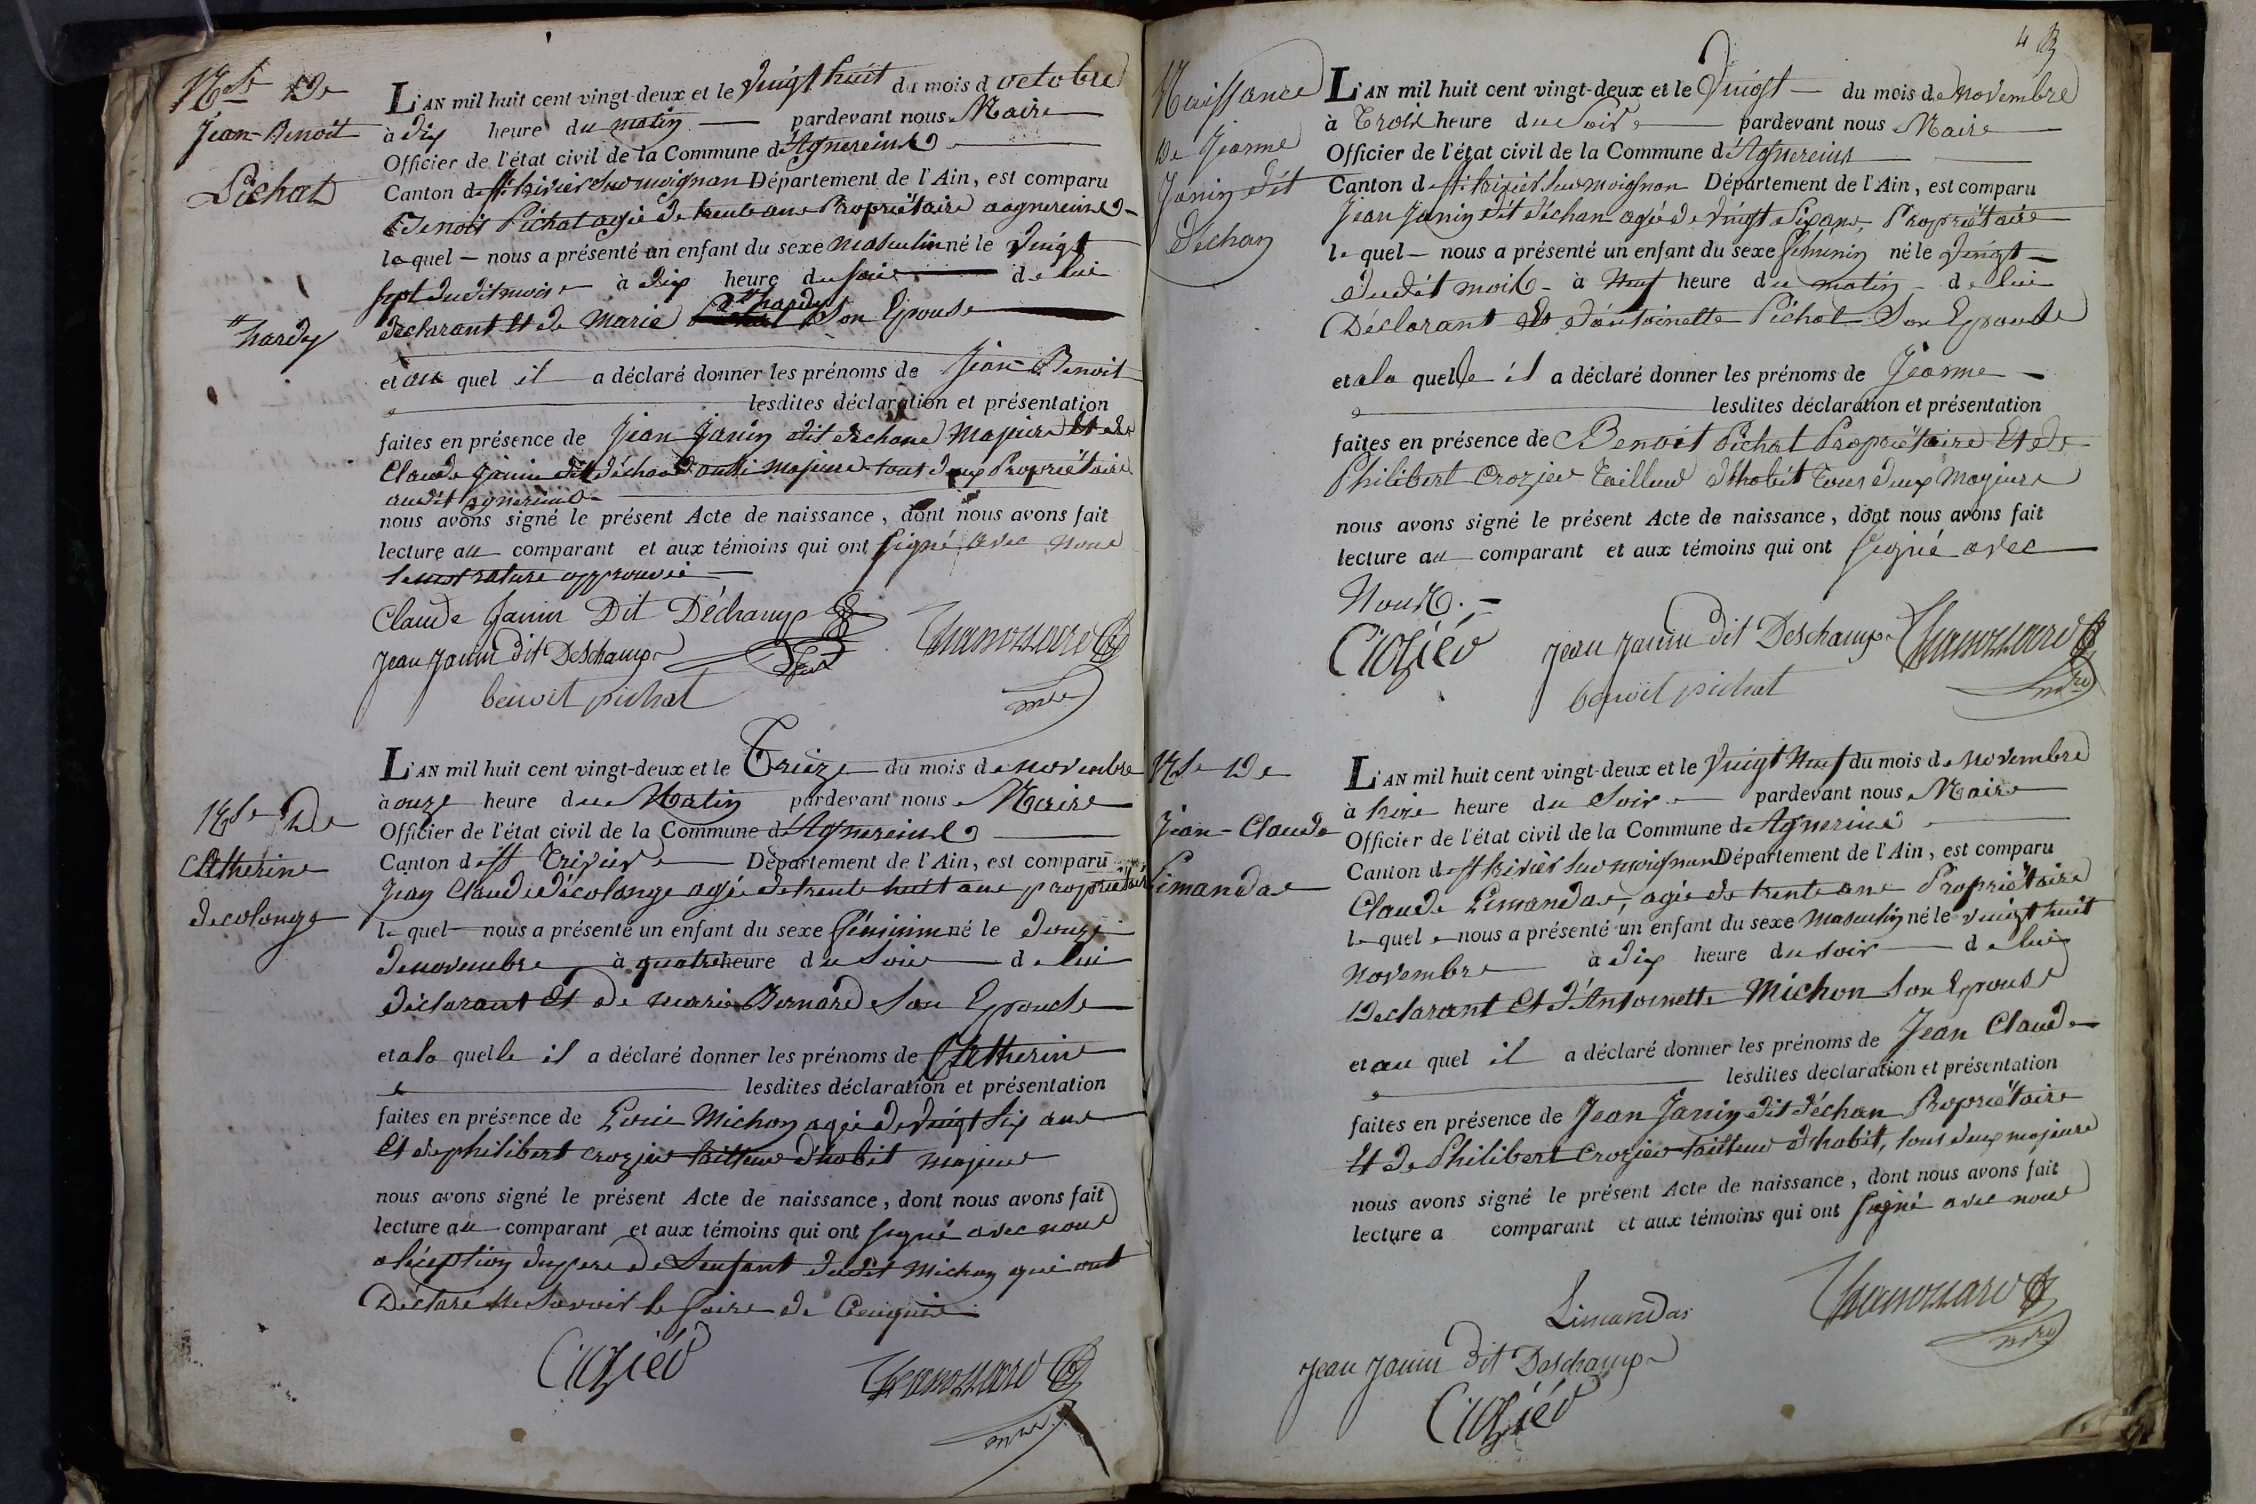 Nce De
Jean-Benoit
Pichat
hardy
L'AN mil huit cent vingt-deux et le vingt huit du mois d octobre
à dix heure du matin pardevant nous Maire
Officier de l'état civil de la Commune d'Agnereins
Canton de St trivier sur moignan Département de l'Ain, est comparu
Benoit Pichat agé de trente ans Propriétaire a agnereins
lequel nous a présenté un enfant du sexe masculin né le vingt
sept dudit mois à dix heure du soir de lui
déclarant et de Marie hardy Son Epouse
et au quel il a déclaré donner les prénoms de Jean-Benoit
lesdites déclaration et présentation
faites en présence de Jean Janin dit déchans Majeure et de
Claude Janin dit déchans aussi majeure tous deux Propriétaire
audit agnereins
nous avons signé le présent Acte de naissance, dont nous avons fait
lecture au comparant et aux témoins qui ont signé avec nous
approuvée
Claude Janin Dit Déchamp
Jean Janin dit Deschamp
benoit pichat
mre
Nce De
Catherine
decolonge
L'AN mil huit cent vingt-deux et le Treize du mois de novembre
à onze heure du Matin pardevant nous Maire
Officier de l'état civil de la Commune d'Agnereins
Canton de St Trivier Département de l'Ain, est comparu
Jean Claude décolonge agé de trente huit ans propriétaire
lequel nous a présenté un enfant du sexe féminin né le douze
de novembre à quatre heure du soir de lui
déclarant et de marie Bernard son Epouse
et a la quelle il a déclaré donner les prénoms de Catherine
lesdites déclaration et présentation
faites en présence de Louis Michon agé de vingt six ans
et de philibert crozier tailleur d'habit majeur
nous avons signé le présent Acte de naissance, dont nous avons fait
lecture au comparant et aux témoins qui ont signé avec nous
a l'éxception du pere de l'enfant dudit Michon qui ont
Déclaré ne savoir le faire de ce enquis
Crozier
mre
4
Naissance
De Jeanne
Janin dit
déchan
L'AN mil huit cent vingt-deux et le vingt du mois de novembre
à Trois heure du soir pardevant nous Maire
Officier de l'état civil de la Commune d'Agnereins
Canton de St trivier sur moignan Département de l'Ain, est comparu
Jean Janin dit déchan agé de vingt six ans, Propriétaire
lequel nous a présenté un enfant du sexe féminin né le vingt
dudit mois à neuf heure du matin de lui
Déclarant et d'antoinette Pichat son Epouse
et a la quelle il a déclaré donner les prénoms de Jeanne
lesdites déclaration et présentation
faites en présence de Benoit Pichat Propriétaire et de
Philibert Crozier Tailleur d'habit tous deux Majeure
nous avons signé le présent Acte de naissance, dont nous avons fait
lecture au comparant et aux témoins qui ont signé avec
Nous.
Crozier
Jean Janin dit Deschamp
benoit pichat
mre
Nce De
Jean-Claude
Limandas
L'AN mil huit cent vingt-deux et le vingt neuf du mois de novembre
à trois heure du soir pardevant nous Maire
Officier de l'état civil de la Commune de Agnereins
Canton de St trivier sur moignan Département de l'Ain, est comparu
Claude Limandas, agé de trente ans Propriétaire
lequel nous a présenté un enfant du sexe masculin né le vingt huit
novembre à dix heure du soir de lui
Declarant et d'Antoinette Michon son Epouse
et au quel il a déclaré donner les prénoms de Jean Claude
lesdites déclaration et présentation
faites en présence de Jean Janin dit déchan Propriétaire
et de Philibert Crozier tailleur d'habit, tous deux majeure
nous avons signé le présent Acte de naissance, dont nous avons fait
lecture a comparant et aux témoins qui ont signé avec nous
Limandas
mre
Jean Janin dit Deschamp
Crozier